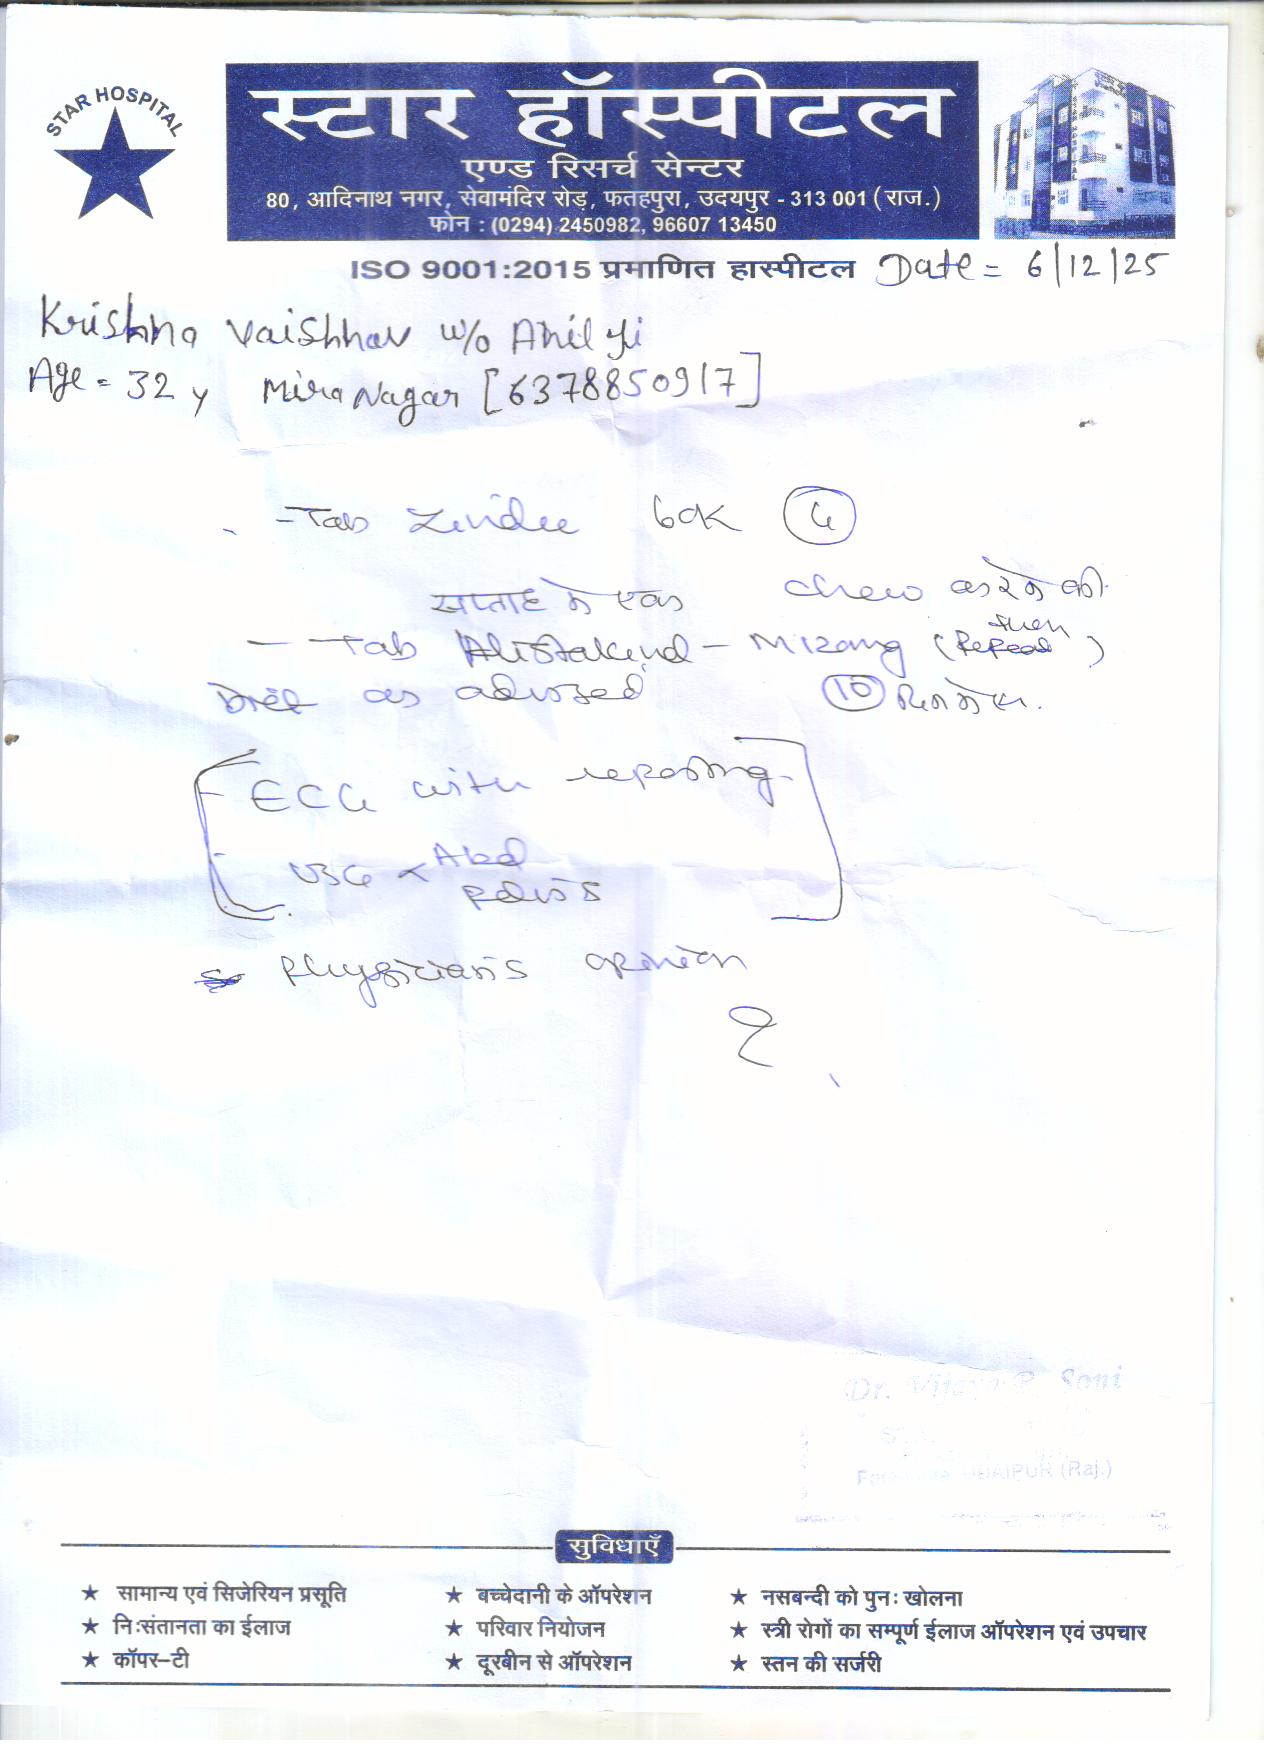 STAR HOSPITAL
स्टार हॉस्पीटल
एण्ड रिसर्च सेन्टर
80, आदिनाथ नगर, सेवामंदिर रोड़, फतहपुरा, उदयपुर - 313 001 (राज.)
फोन : (0294) 2450982, 96607 13450
ISO 9001:2015 प्रमाणित हास्पीटल Date = 6/12/25
Krishna Vaishnav w/o Anil ji
Age = 32 y Mira Nagar [6378850917]
- Tab 60K
सप्ताह में एक chew करने की
- Tab (Repeat then)
Diet as advised 10 दिन में एक.
- ECG with reporting
- USG < Abd
Pelvis
Physician's opinion
Dr. Vijaya P. Soni
UDAIPUR (Raj.)
सुविधाएँ
★ सामान्य एवं सिजेरियन प्रसूति ★ बच्चेदानी के ऑपरेशन ★ नसबन्दी को पुनः खोलना
★ निःसंतानता का ईलाज ★ परिवार नियोजन ★ स्त्री रोगों का सम्पूर्ण ईलाज ऑपरेशन एवं उपचार
★ कॉपर-टी ★ दूरबीन से ऑपरेशन ★ स्तन की सर्जरी